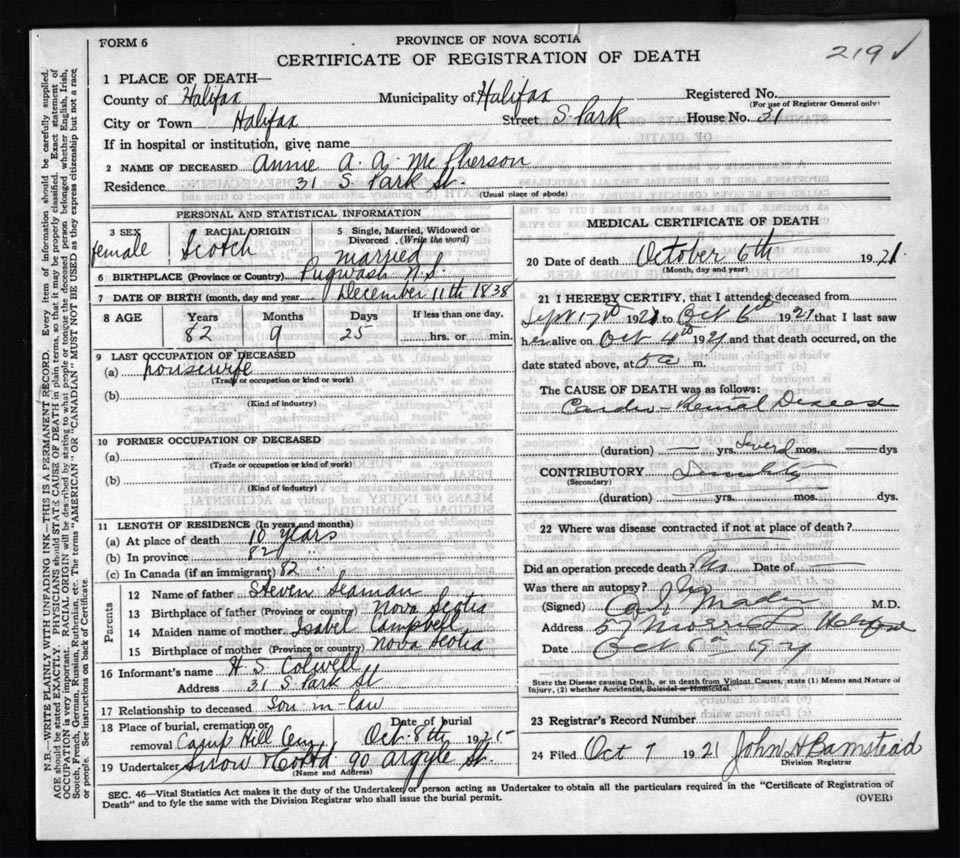 FORM 6
PROVINCE OF NOVA SCOTIA
CERTIFICATE OF REGISTRATION OF DEATH
219
1 PLACE OF DEATH—
County of Halifax Municipality of Halifax Registered No.
(For use of Registrar General only)
City or Town Halifax Street S. Park House No. 31
If in hospital or institution, give name
2 NAME OF DECEASED Annie A. A. McPherson
Residence 31 S. Park St.
(Usual place of abode)
PERSONAL AND STATISTICAL INFORMATION
3 SEX RACIAL ORIGIN 5 Single, Married, Widowed or
Divorced (Write the word)
female Scotch married
6 BIRTHPLACE (Province or Country) Pugwash N.S.
7 DATE OF BIRTH (month, day and year) December 11th 1838
8 AGE Years Months Days If less than one day,
82 9 25 hrs. or min.
9 LAST OCCUPATION OF DECEASED
(a) housewife
(Trade or occupation or kind or work)
(b)
(Kind of industry)
10 FORMER OCCUPATION OF DECEASED
(a)
(Trade or occupation or kind of work)
(b)
(Kind of Industry)
11 LENGTH OF RESIDENCE (In years and months)
(a) At place of death 10 years
(b) In province 82 "
(c) In Canada (if an immigrant) 82 "
Parents
12 Name of father Steven Seaman
13 Birthplace of father (Province or country) Nova Scotia
14 Maiden name of mother Isabel Campbell
15 Birthplace of mother (Province or country) Nova Scotia
16 Informant's name H. S. Colwell
Address 31 S Park St
17 Relationship to deceased Son-in-law
18 Place of burial, cremation or Date of burial
removal Camp Hill Cem Oct. 8th 192
19 Undertaker Snow & Co Ltd 90 Argyle St.
(Name and Address)
MEDICAL CERTIFICATE OF DEATH
20 Date of death October 6th 1921
(Month, day and year)
21 I HEREBY CERTIFY, that I attended deceased from
Sept 17th 1921 to Oct 6th 1921 that I last saw
her alive on Oct 4th 1921 and that death occurred, on the
date stated above, at 5 a m.
The CAUSE OF DEATH was as follows:
Cardio-Renal Disease
(duration) — yrs. Several mos. — dys
CONTRIBUTORY Senility
(Secondary)
(duration) yrs. mos. dys.
22 Where was disease contracted if not at place of death?
Did an operation precede death? No Date of —
Was there an autopsy? No
(Signed) Mader M.D.
Address 57 Morris St Halifax
Date Oct 6th 1921
State the Disease causing Death, or in death from Violent Causes, state (1) Means and Nature of
Injury, (2) whether Accidental, Suicidal or Homicidal.
23 Registrar's Record Number
24 Filed Oct 7 1921 John H Barnstead
Division Registrar
SEC. 46—Vital Statistics Act makes it the duty of the Undertaker or person acting as Undertaker to obtain all the particulars required in the "Certificate of Registration of
Death" and to fyle the same with the Division Registrar who shall issue the burial permit.
(OVER)
N.B.—WRITE PLAINLY WITH UNFADING INK—THIS IS A PERMANENT RECORD. Every item of information should be carefully supplied.
AGE should be stated EXACTLY. PHYSICIANS should STATE CAUSE OF DEATH in plain terms, so that it may be properly classified. Exact statement of
OCCUPATION is very important. RACIAL ORIGIN will be described by stating to what people or tongue the deceased person belonged whether English, Irish,
Scotch, French, German, Russian, Ruthenian, etc. The terms "AMERICAN" OR "CANADIAN" MUST NOT BE USED as they express citizenship but not a race
or people. See instructions on back of Certificate.